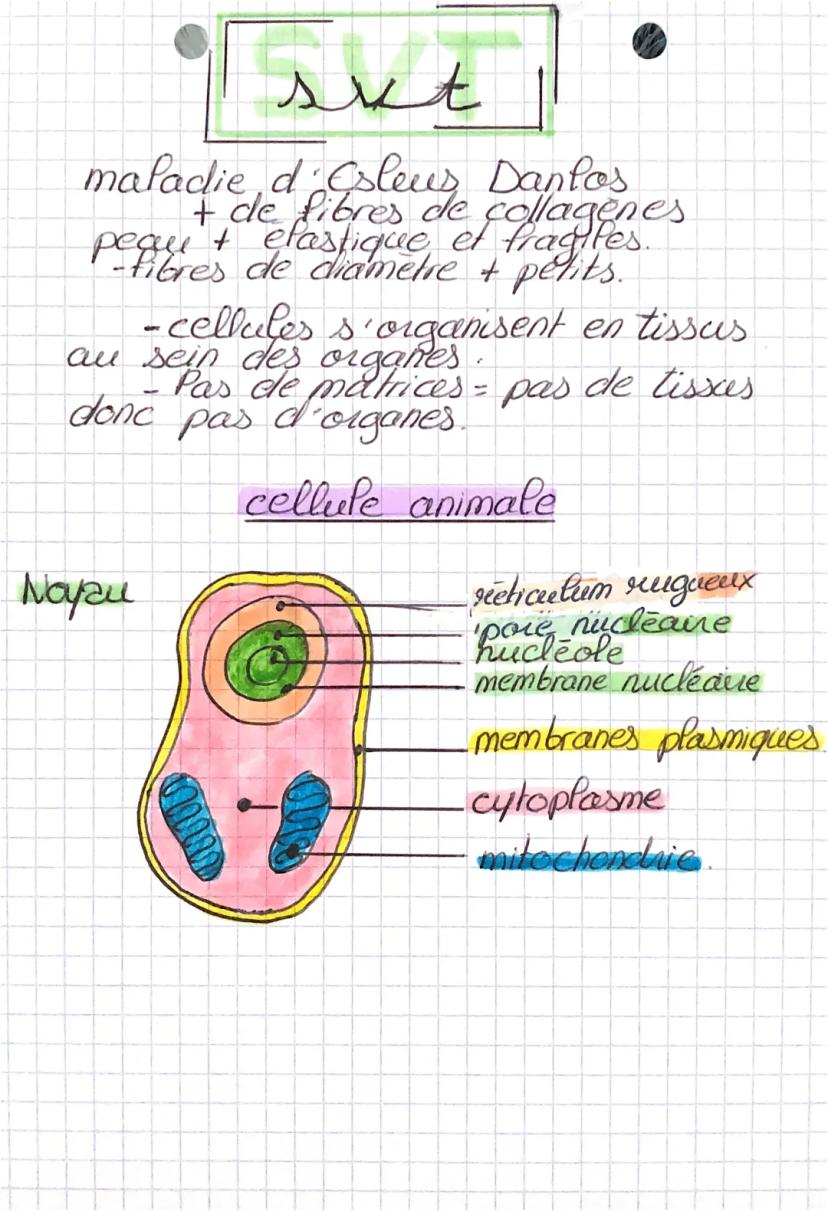 SVT
svt
maladie d'Esleus Danlos
+ de fibres de collagènes
peau + élastique et fragiles.
-fibres de diamètre + petits.
- cellules s'organisent en tissus
au sein des organes.
- Pas de matrices = pas de tissus
donc pas d'organes.
cellule animale
Noyau
réticulum rugueux
pore nucléaire
nucléole
membrane nucléaire
membranes plasmiques
cytoplasme
mitochondrie.